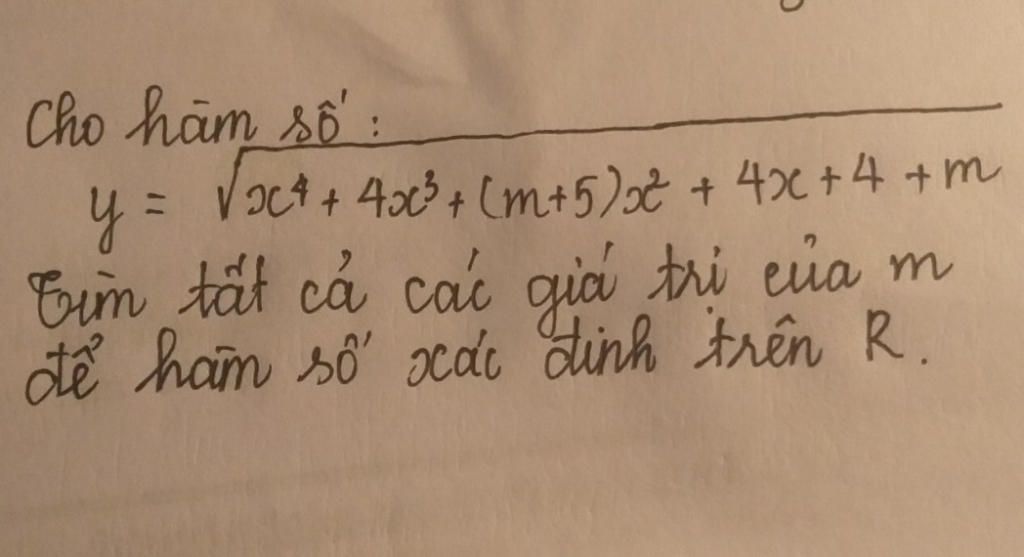 Cho hàm số :
y = √x⁴ + 4x³ + (m+5)x² + 4x + 4 + m
Tìm tất cả các giá trị của m
để hàm số xác định trên R.